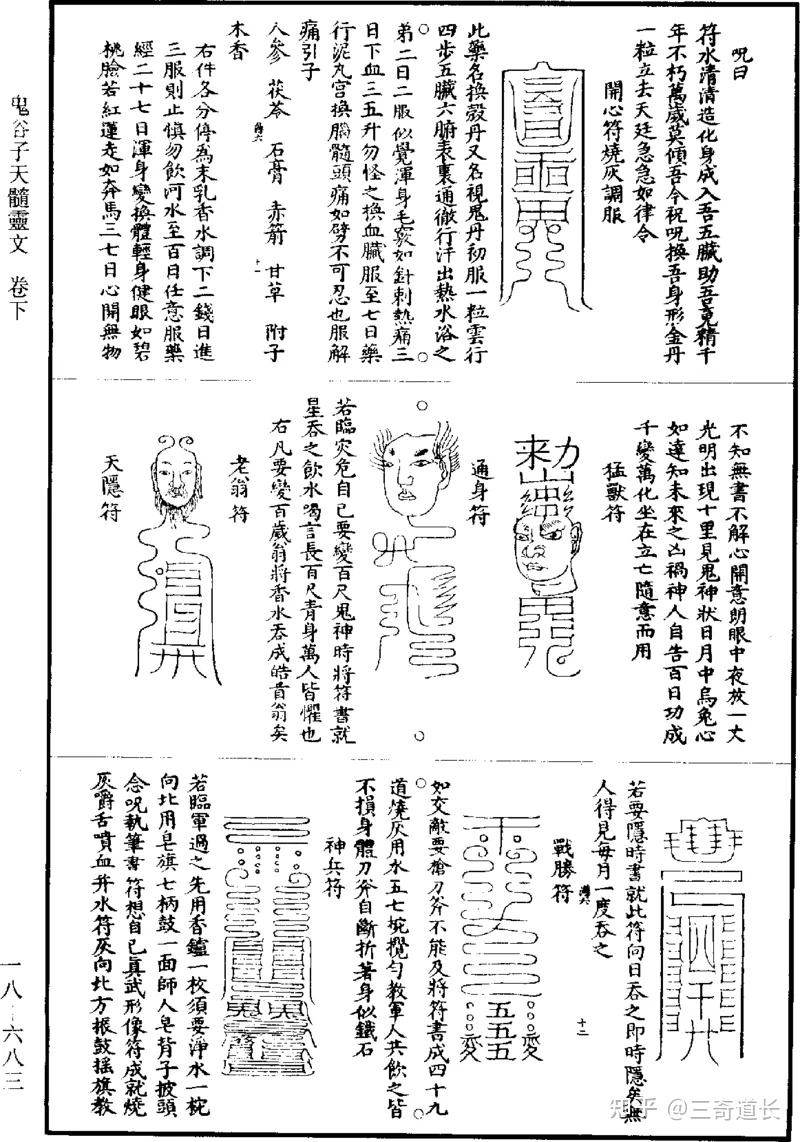 呪曰
符水清清造化身成入吾五臟助吾竟精千
年不朽萬歲莫傾吾今祝呪換吾身形金丹
一粒立去天廷急急如律令
開心符燒灰調服
此藥名換殼丹又名視鬼丹初服一粒雲行
四步五臟六腑表裏通徹行汗出熱水浴之
弟二日二服似覺渾身毛竅如針刺熱痛三
日下血三五升勿怪之換血臟服至七日藥
行泥丸宮換腦髓頭痛如劈不可忍也服解
痛引子
人參 茯苓 石膏 赤箭 甘草 附子
木香
右件各分停為末乳香水調下二錢日進
三服則止慎勿飲河水至百日任意服藥
經二十七日渾身變換體輕身健眼如碧
桃臉若紅蓮走如奔馬三七日心開無物
不知無書不解心開意朗眼中夜放一丈
光明出現十里見鬼神狀日月中烏兔心
如達知未來之凶禍神人自告百日功成
千變萬化坐在立亡隨意而用
猛獸符
敕
通身符
若臨災危自己要變百尺鬼神時將符書就
星吞之飲水喝言長百尺青身萬人皆懼也
右凡要變百歲翁將香水吞成皓首翁矣
老翁符
天隱符
若要隱時書就此符向日吞之即時隱矣無
人得見每月一度吞之
戰勝符
十二
五五五
如交敵要槍刀斧不能及將符書成四十九
道燒灰用水五七椀攪勻教軍人共飲之皆
不損身體刀斧自斷折著身似鐵石
神兵符
若臨軍過之先用香鑪一枚須要淨水一椀
向北用皂旗七柄鼓一面師人皂背子披頭
念呪執筆書符想自己真武形像符成就燒
灰嚼舌噴血并水符灰向北方振鼓搖旗教
鬼谷子天髓靈文 卷下
一八－六八三
知乎 @三奇道长